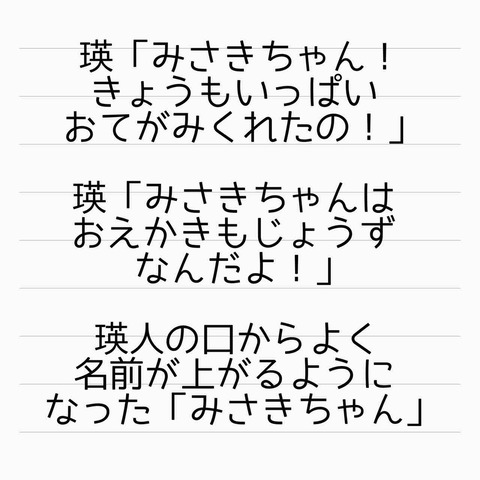 瑛「みさきちゃん！
きょうもいっぱい
おてがみくれたの！」
瑛「みさきちゃんは
おえかきもじょうず
なんだよ！」
瑛人の口からよく
名前が上がるように
なった「みさきちゃん」